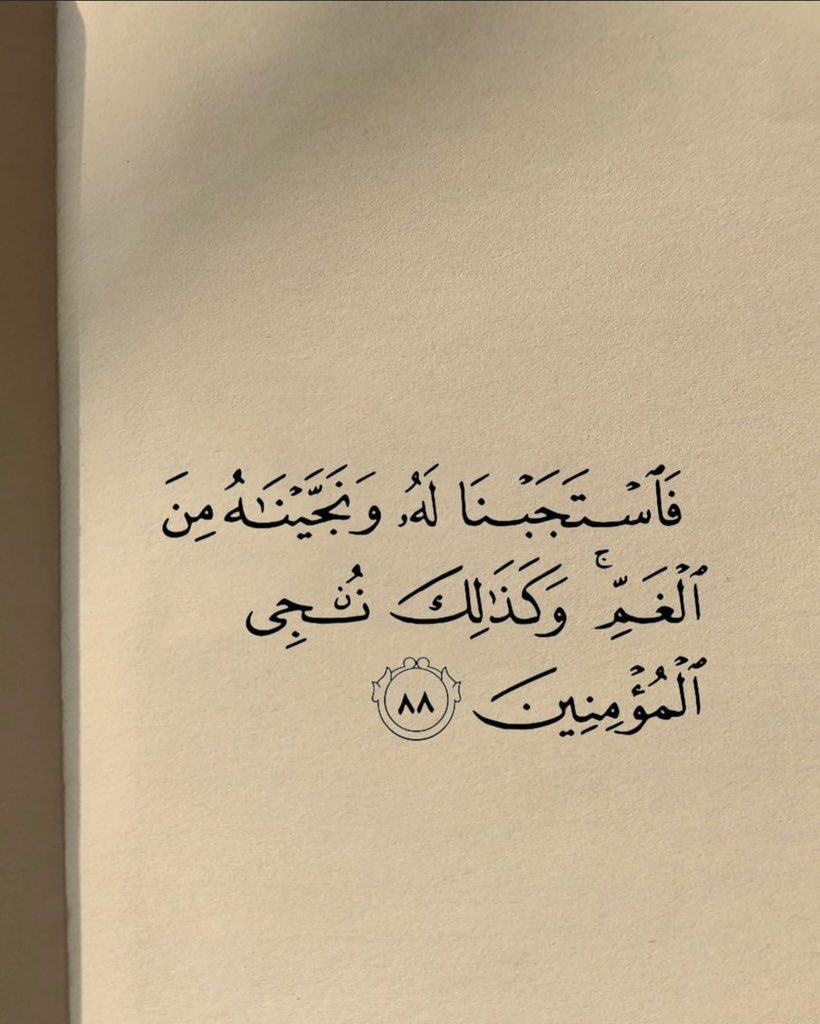 فَٱسْتَجَبْنَا لَهُۥ وَنَجَّيْنَـٰهُ مِنَ
ٱلْغَمِّ ۚ وَكَذَٰلِكَ نُـۨجِى
ٱلْمُؤْمِنِينَ ٨٨